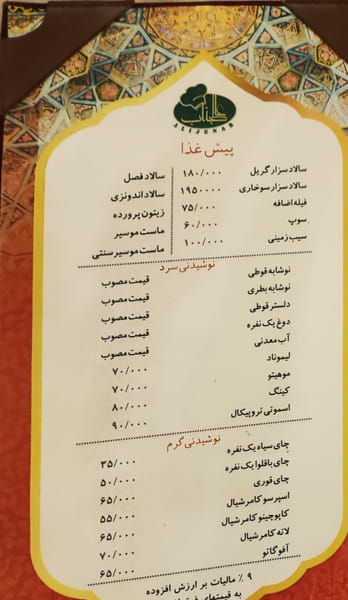 عالیجناب
ALIJENAB
پیش غذا
سالاد سزار گریل ۱۸۰/۰۰۰
سالاد سزار سوخاری ۱۹۵۰۰۰۰
فیله اضافه ۷۵/۰۰۰
سوپ ۶۰/۰۰۰
سیب زمینی ۱۰۰/۰۰۰
سالاد فصل
سالاد اندونزی
زیتون پرورده
ماست موسیر
ماست موسیر سنتی
نوشیدنی سرد
نوشابه قوطی قیمت مصوب
نوشابه بطری قیمت مصوب
دلستر قوطی قیمت مصوب
دوغ یک نفره قیمت مصوب
آب معدنی قیمت مصوب
لیموناد ۷۰/۰۰۰
موهیتو ۷۰/۰۰۰
کینگ ۸۰/۰۰۰
اسموتی تروپیکال ۹۰/۰۰۰
نوشیدنی گرم
چای سیاه یک نفره ۳۵/۰۰۰
چای باقلوا یک نفره ۵۰/۰۰۰
چای قوری ۶۵/۰۰۰
اسپرسو کامرشیال ۵۵/۰۰۰
کاپوچینو کامرشیال ۶۵/۰۰۰
لاته کامرشیال ۷۰/۰۰۰
آفوگاتو ۶۵/۰۰۰
۹ ٪ مالیات بر ارزش افزوده
به قیمتهای